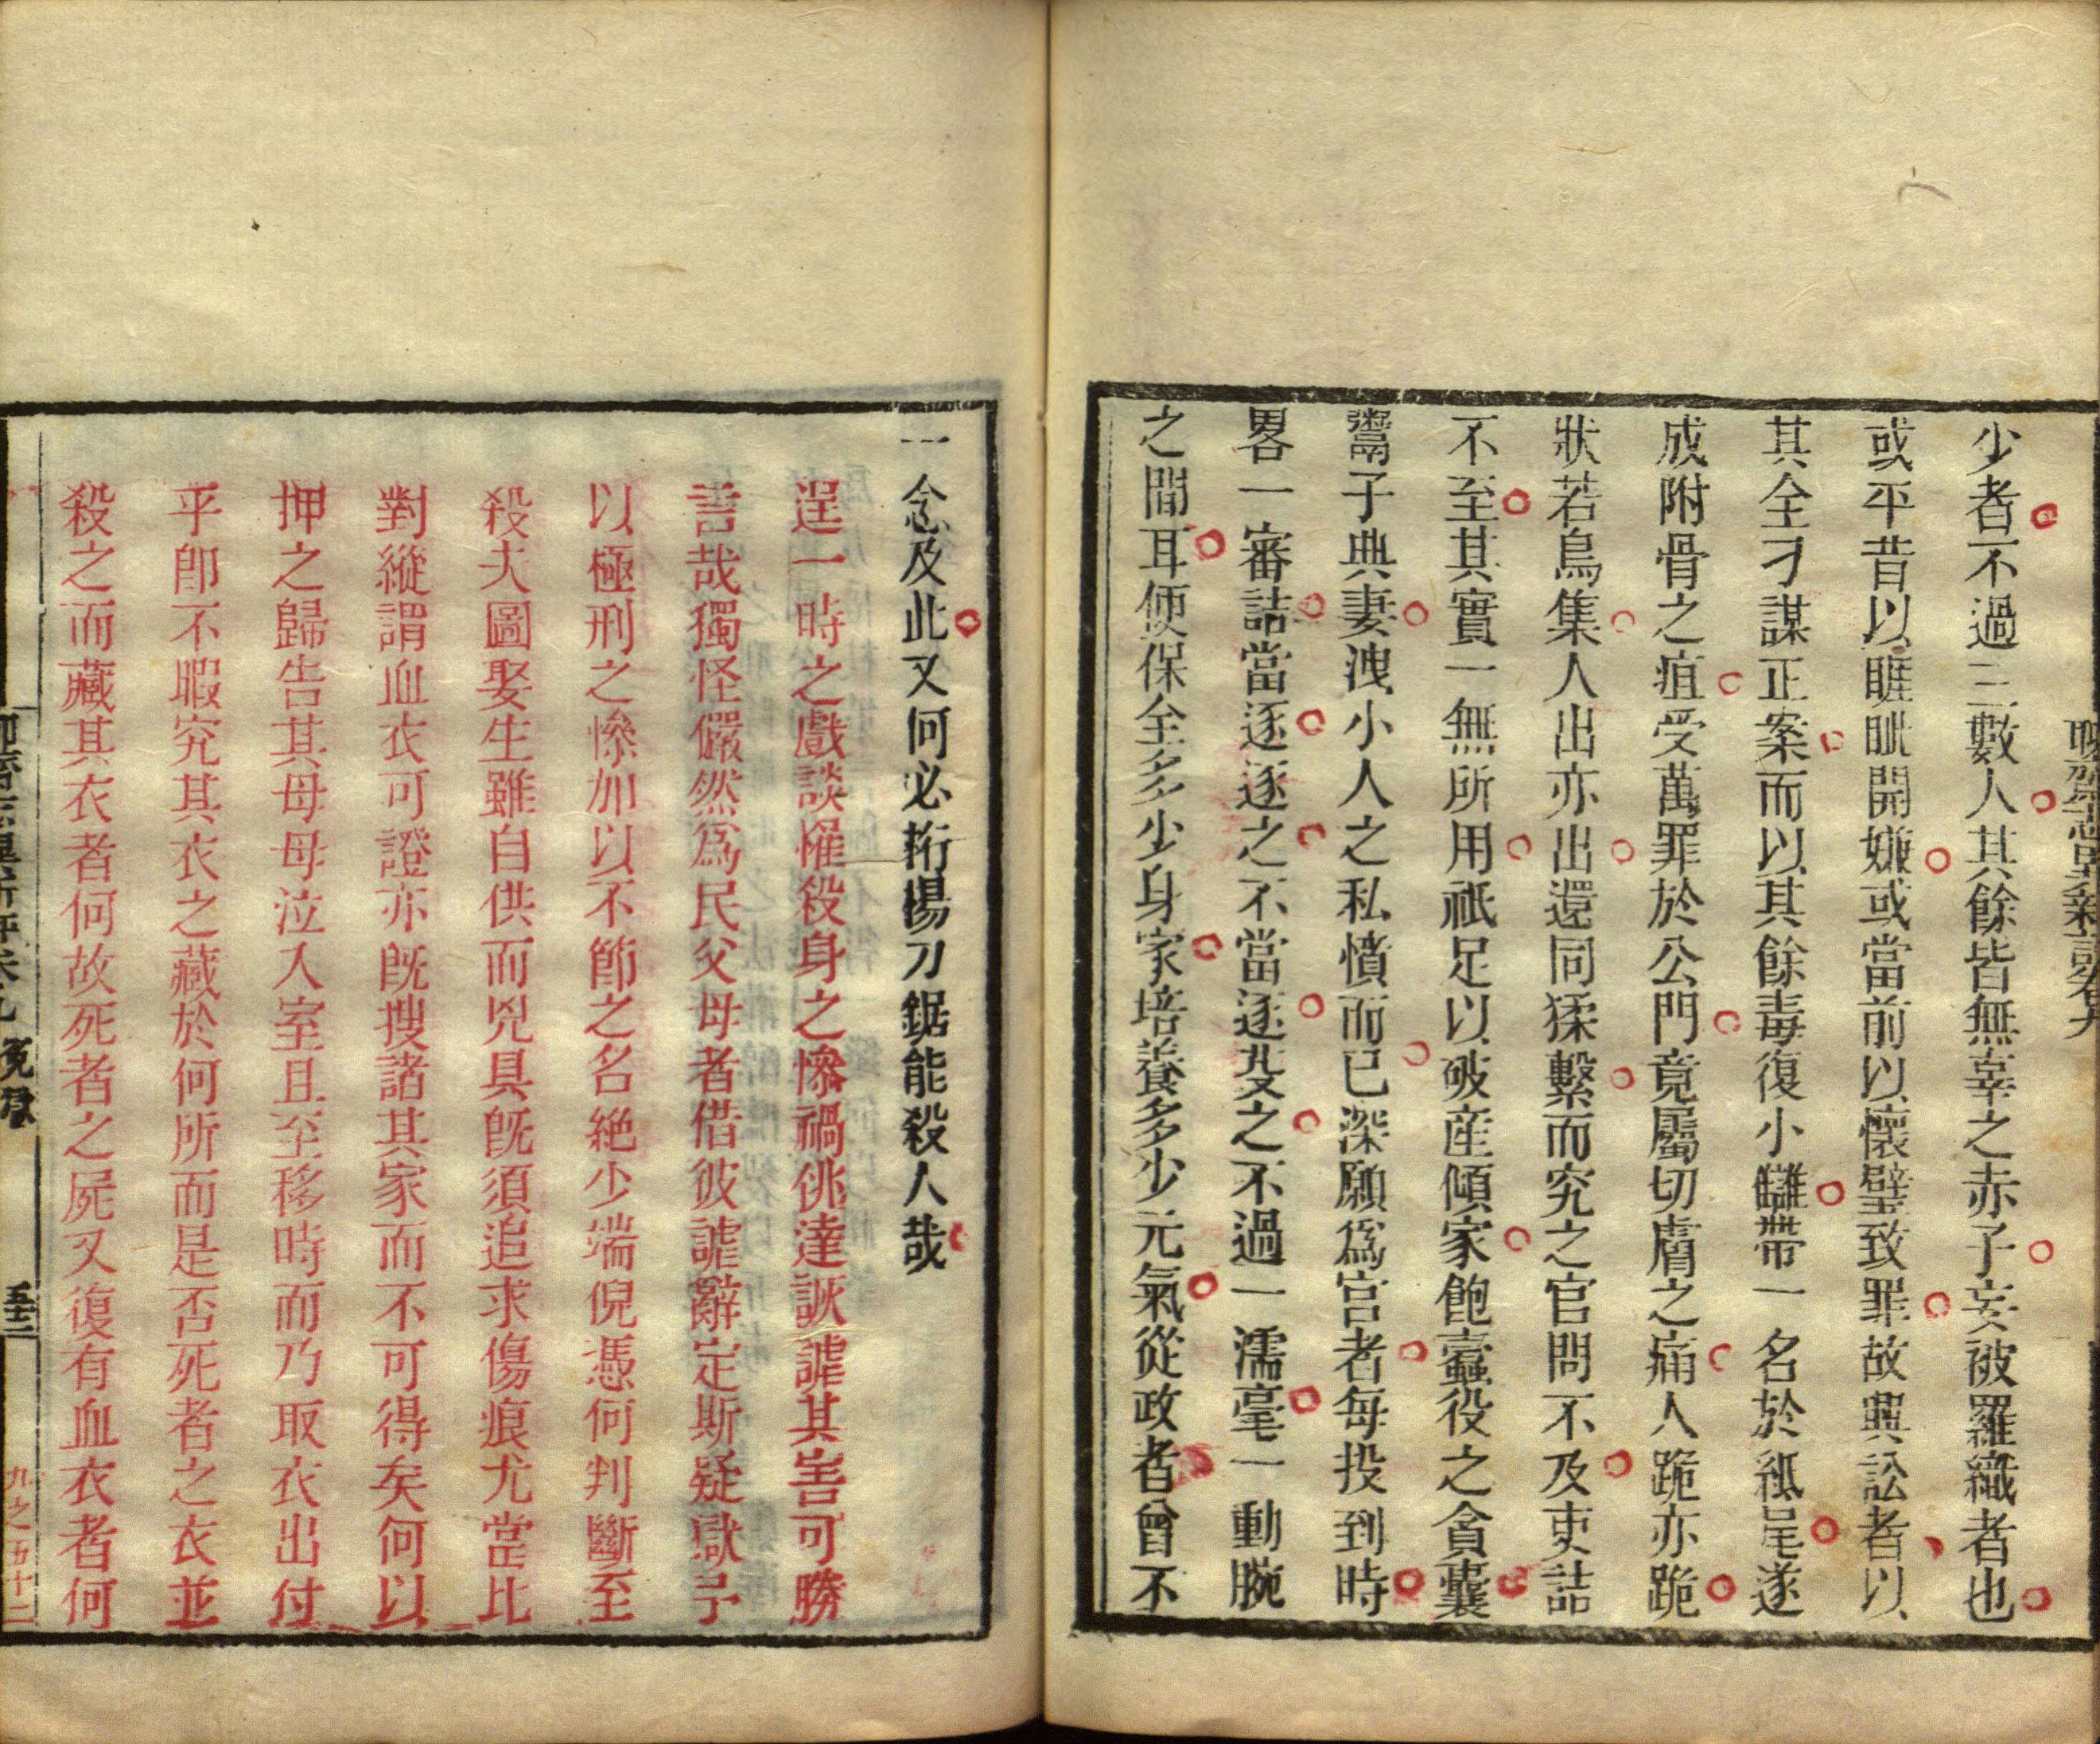 聊齋志異新評卷九
少者不過三數人其餘皆無辜之赤子妄被羅織者也
或平昔以睚眦開嫌或當前以懷璧致罪故興訟者以
其全力謀正案而以其餘毒復小讎帶一名於紙尾遂
成附骨之疽受萬罪於公門竟屬切膚之痛人跪亦跪
狀若烏集人出亦出還同猱繫而究之官問不及吏詰
不至其實一無所用祇足以破產傾家飽蠹役之貪囊
鬻子典妻洩小人之私憤而已深願爲官者每投到時
畧一審詰當逐逐之不當逐芟之不過一濡毫一動腕
之間耳便保全多少身家培養多少元氣從政者曾不
一念及此又何必桁楊刀鋸能殺人哉
逞一時之戲談罹殺身之慘禍佻達詼謔其害可勝
言哉獨怪儼然爲民父母者借彼謔辭定斯疑獄予
以極刑之慘加以不節之名絶少端倪憑何判斷至
殺夫圖娶生雖自供而兇具旣須追求傷痕尤當比
對縱謂血衣可證亦旣搜諸其家而不可得矣何以
押之歸告其母母泣入室且至移時而乃取衣出付
乎卽不暇究其衣之藏於何所而是否死者之衣並
殺之而藏其衣者何故死者之屍又復有血衣者何
聊齋志異新評卷九 冤獄 五十二
九之五十二